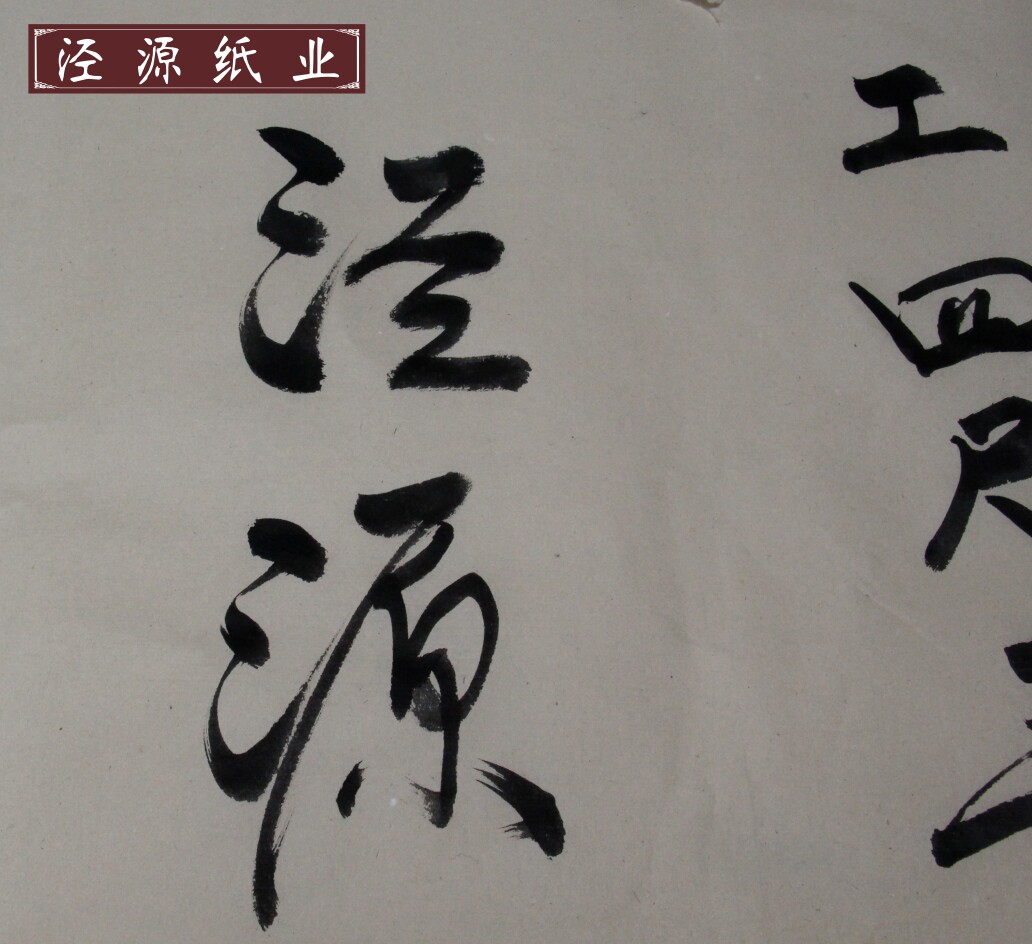 泾源纸业
工四尺
泾源